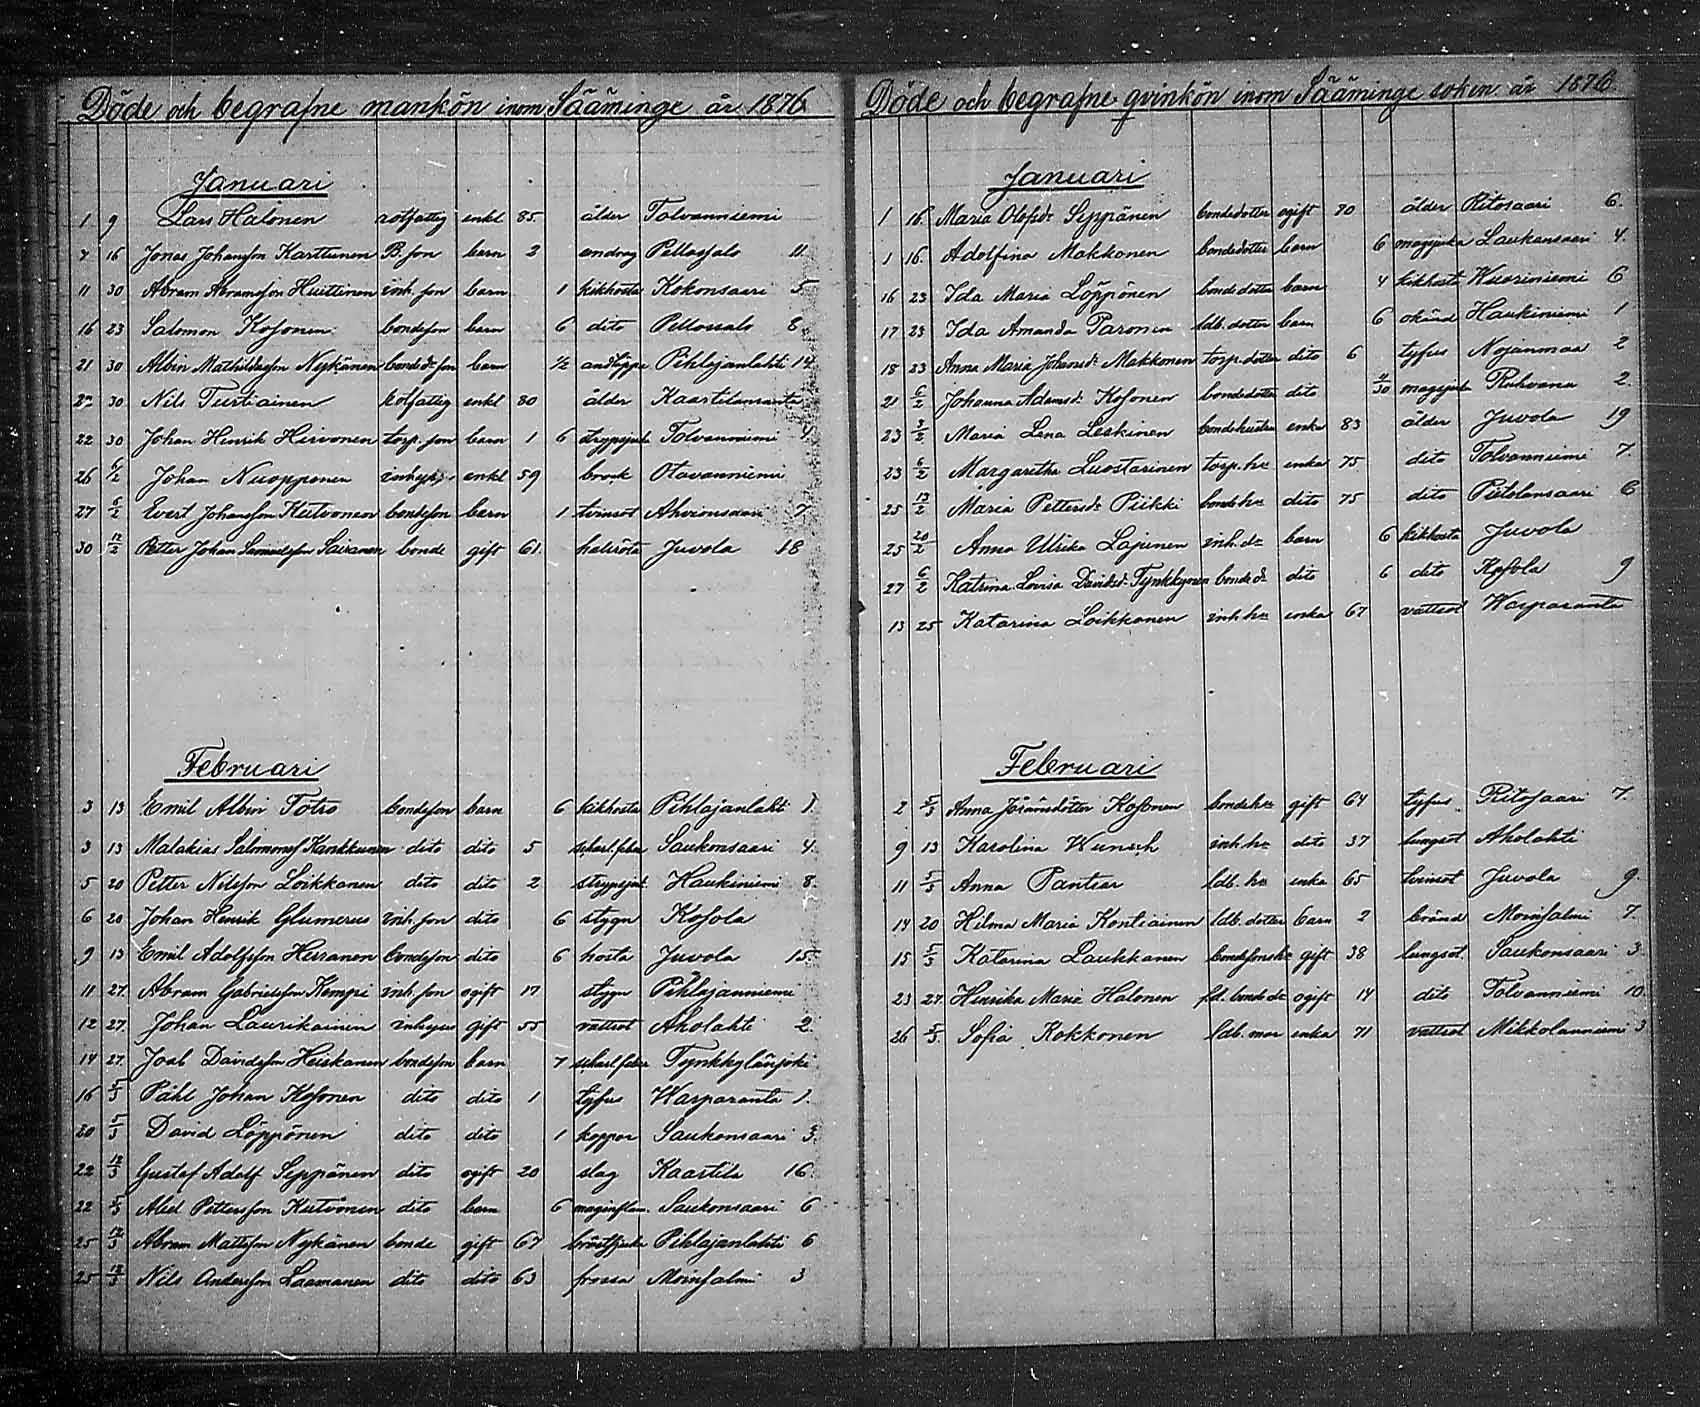 Döde och begrafne mankön inom Sääminge år 1876
Januari
1 9 Lars Halonen rotfattig enkl 85 ålder Tolvanniemi
7 16 Jonas Johansson Karttunen B. son barn 2 andrag Pellossalo 11
11 30 Abram Abramsson Huttinen inh. son barn 1 kikhosta Kokonsaari 5
16 23 Salomon Kosonen bondeson barn 6 dito Pellossalo 8
21 30 Albin Mathildasson Nykänen bondedr son barn 1/2 andtäppa Pihlajanlahti 14
22 30 Nils Turtiainen rotfattig enkl 80 ålder Kaartilanranta
22 30 Johan Henrik Hirvonen torp. son barn 1 6 strypsjuk Tolvanniemi
26 6/2 Johan Nuopponen inhys. enkl 59 brock Otavanniemi
27 6/2 Evert Johansson Kutvonen bondeson barn 1 tvinsot Ahvionsaari 7
30 12/2 Petter Johan Samuelsson Sairanen bonde gift 61 halsröta Juvola 18
Februari
3 13 Emil Albin Totro bondeson barn 6 kikhosta Pihlajanlahti 1
3 13 Malakias Salomonss Kankkunen dito dito 5 scharl. feber Saukonsaari 4
5 20 Petter Nilsson Loikkanen dito dito 2 strypsjuk. Haukiniemi 8
6 20 Johan Henrik Glumerus inh. son dito 6 stygn Kosola
9 13 Emil Adolfsson Herranen bondeson dito 6 hosta Juvola 15
11 27 Abram Gabrielsson Kemppi inh. son ogift 17 stygn Pihlajanniemi
12 27 Johan Laurikainen inhyses gift 55 vattsot Aholahti 2
14 27 Joel Davidsson Heiskanen bondeson barn 7 scharl. feber Tynkkylänjoki
16 5/3 Påhl Johan Kosonen dito dito 1 tyfus Warparanta 1
20 5/3 David Löppönen dito dito 1 koppor Saukonsaari 3
22 12/3 Gustaf Adolf Seppänen dito ogift 20 slag Kaartila 16
22 5/3 Abel Pettersson Kutvonen dito barn 6 maginflam. Saukonsaari 6
25 12/3 Abram Mattsson Nykänen bonde gift 67 bröstsjuka Pihlajanlahti 6
25 12/3 Nils Andersson Laamanen dito dito 63 frossa Moinsalmi 3
Döde och begrafne qvinkön inom Sääminge soken år 1876
Januari
1 16 Maria Olofsdr Seppänen bondedotter ogift 70 ålder Ritosaari 6
1 16 Adolfina Makkonen bondedotter barn 6 magsjuka Laukansaari 4
16 23 Ida Maria Löppönen bondedotter barn 4 kikhosta Kuoriniemi 6
17 23 Ida Amanda Paronen ldb. dotter barn 6 okänd Haukiniemi 1
18 23 Anna Maria Johansdr Makkonen torp. dotter dito 6 tyfus Nojanmaa 2
21 6/2 Johanna Adamsdr Kosonen bondedotter dito 11/30 magsjuka Ruhvana 2
23 3/2 Maria Lena Leskinen bondehustru enka 83 ålder Juvola 19
23 6/2 Margaretha Luostarinen torp. hu enka 75 dito Tolvanniemi 7
25 12/2 Maria Pettersdr Piikki bondehu dito 75 dito Pietolansaari 6
25 20/2 Anna Ulrika Lajunen inh. dr barn 6 kikhosta Juvola
27 6/2 Katrina Lovisa Davidsdr Tynkkynen bondedr dito 6 dito Kosola 9
13 25 Katarina Loikkanen inh. hu enka 67 vattsot Warparanta
Februari
2 5/3 Anna Jöransdotter Kosonen bondehu gift 64 tyfus Ritosaari 7
9 13 Karolina Wunsch inh. hu dito 37 lungsot Aholahti
11 5/3 Anna Pantsar ldb. hu enka 65 tvinsot Juvola 9
14 20 Hilma Maria Kontiainen ldb. dotter barn 2 bränd Moinsalmi 7
15 5/3 Katarina Laukkanen bondesonshu gift 38 lungsot Saukonsaari 3
23 27 Henrika Maria Halonen fd. bondedr ogift 14 dito Tolvanniemi 10
26 5/3 Sofia Kokkonen ldb. mor enka 71 vattsot Mikkolanniemi 3